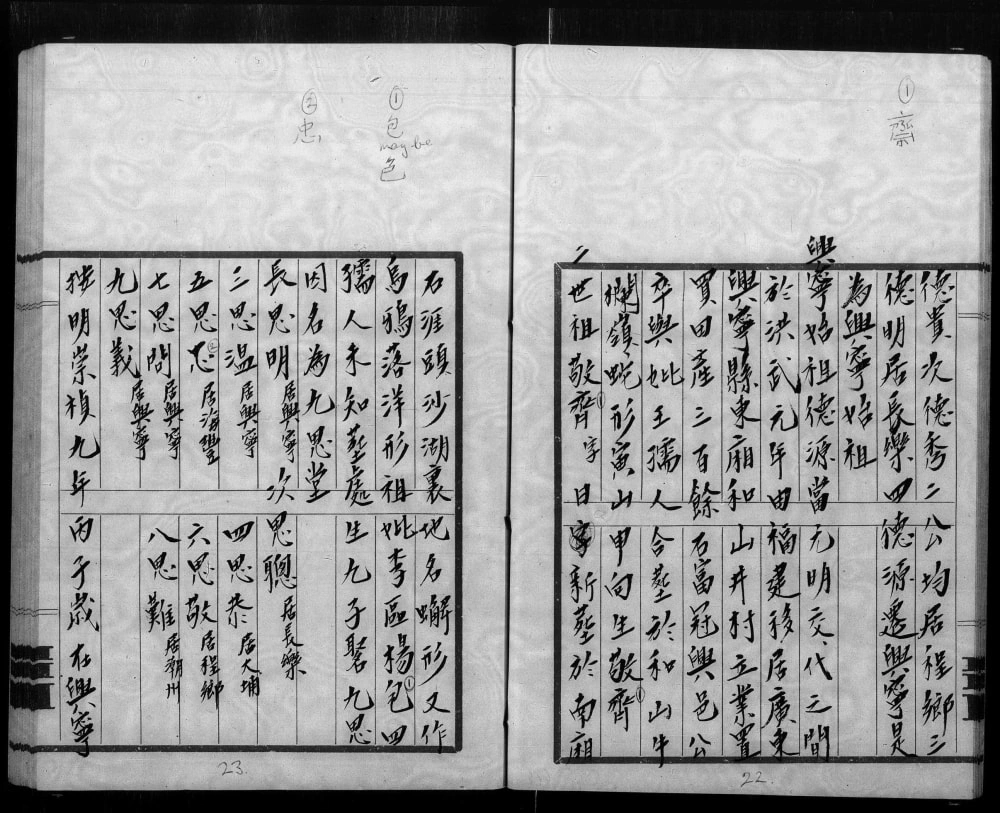 ① 齋
德貴次德秀二公均居程鄉三
德明居長樂四德源遷興寧是
為興寧始祖
興寧始祖德源當元明交代之間
於洪武元年由福建移居廣東
興寧縣東廂和山井村立業置
買田產三百餘石富冠興邑公
卒與妣王孺人合塟於和山牛
欄嶺蛻形寅山甲向生敬齊①
二世祖敬齊①字日新塟於南廂
22
① 包 may be 色
② 忠
石涯頭沙湖裏地名蠏形又作
烏鴉落洋形祖妣李區楊包①四
孺人未知塟處生九子聚九思
因名為九思堂
長思明居興寧 次思聰居長樂
三思温居興寧 四思恭居大埔
五思②居海豐 六思敬居程鄉
七思問居興寧 八思難居潮州
九思義居興寧
明崇禎九年丙子歲在興寧
23